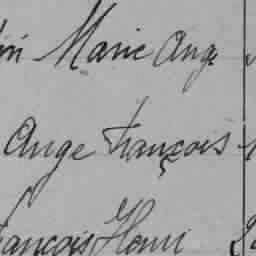 Marie Ange
Ange François
François Henri